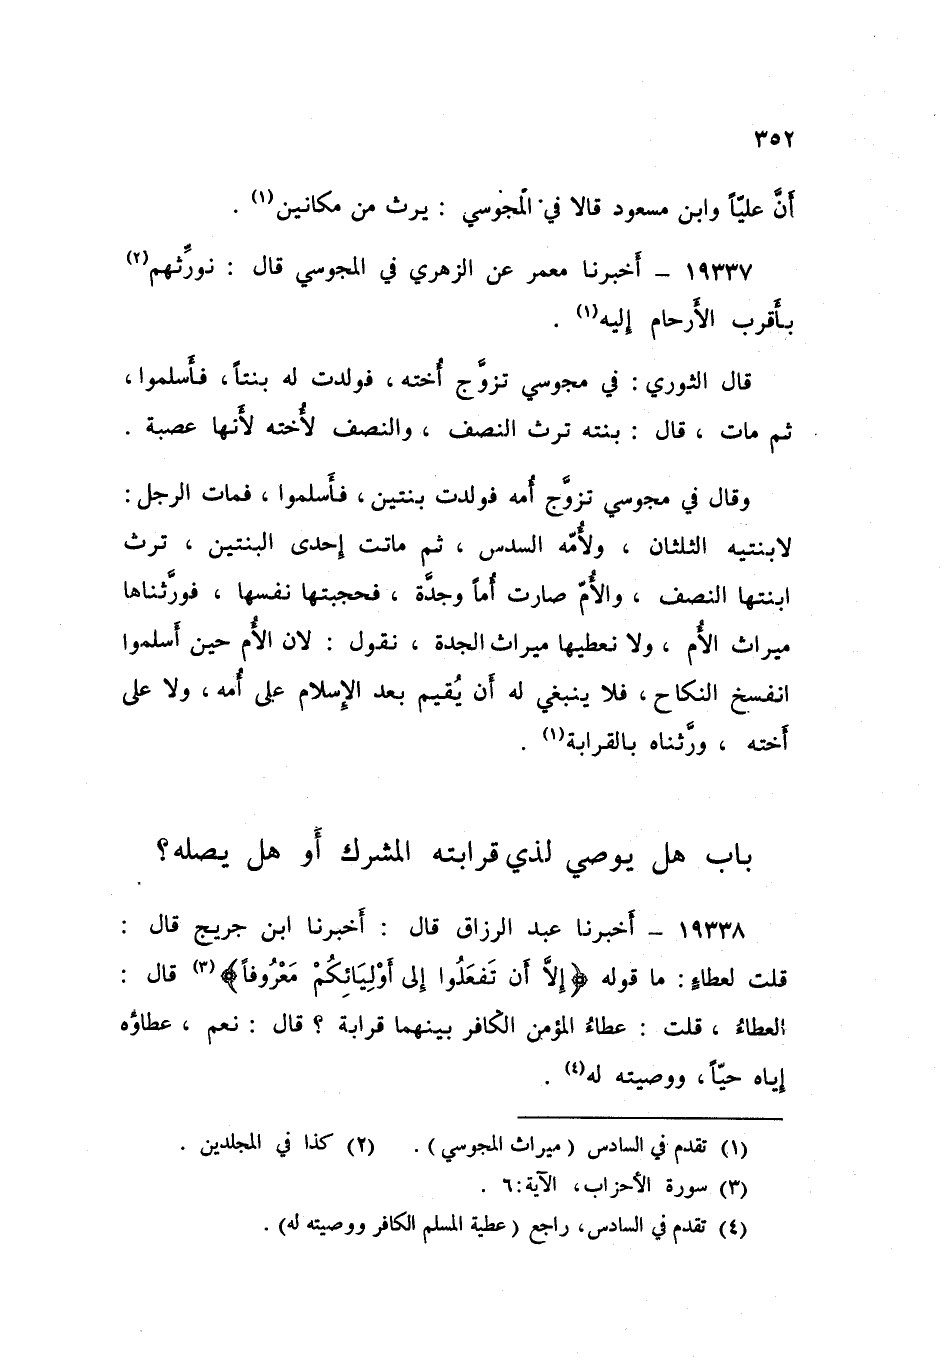 ٣٥٢
أَنَّ عليّاً وابن مسعود قالا في المجوسي : يرث من مكانين(١) .
١٩٣٣٧ – أَخبرنا معمر عن الزهري في المجوسي قال : نورِّثهم(٢)
بأَقرب الأَرحام إليه(١) .
قال الثوري : في مجوسي تزوَّج أُخته ، فولدت له بنتاً ، فأَسلموا ،
ثم مات ، قال : بنته ترث النصف ، والنصف لأُخته لأَنها عصبة .
وقال في مجوسي تزوَّج أُمه فولدت بنتين ، فأَسلموا ، فمات الرجل :
لابنتيه الثلثان ، ولأُمّه السدس ، ثم ماتت إحدى البنتين ، ترث
ابنتها النصف ، والأُمّ صارت أُماً وجدَّة ، فحجبتها نفسها ، فورَّثناها
ميراث الأُم ، ولا نعطيها ميراث الجدة ، نقول : لان الأُم حين أَسلموا
انفسخ النكاح ، فلا ينبغي له أَن يُقيم بعد الإِسلام على أُمه ، ولا على
أَخته ، ورَّثناه بالقرابة(١) .
باب هل يوصي لذي قرابته المشرك أَو هل يصله؟
١٩٣٣٨ – أَخبرنا عبد الرزاق قال : أَخبرنا ابن جريج قال :
قلت لعطاءٍ : ما قوله ﴿إِلاَّ أَن تَفعَلُوا إِلى أَوْلِيَائِكُمْ مَعْرُوفاً﴾(٣) قال :
العطاءُ ، قلت : عطاءُ المؤمن الكافر بينهما قرابة ؟ قال : نعم ، عطاؤُه
إِياه حيّاً ، ووصيته له(٤) .
(١) تقدم في السادس (ميراث المجوسي) . (٢) كذا في المجلدين .
(٣) سورة الأحزاب، الآية:٦ .
(٤) تقدم في السادس، راجع (عطية المسلم الكافر ووصيته له) .